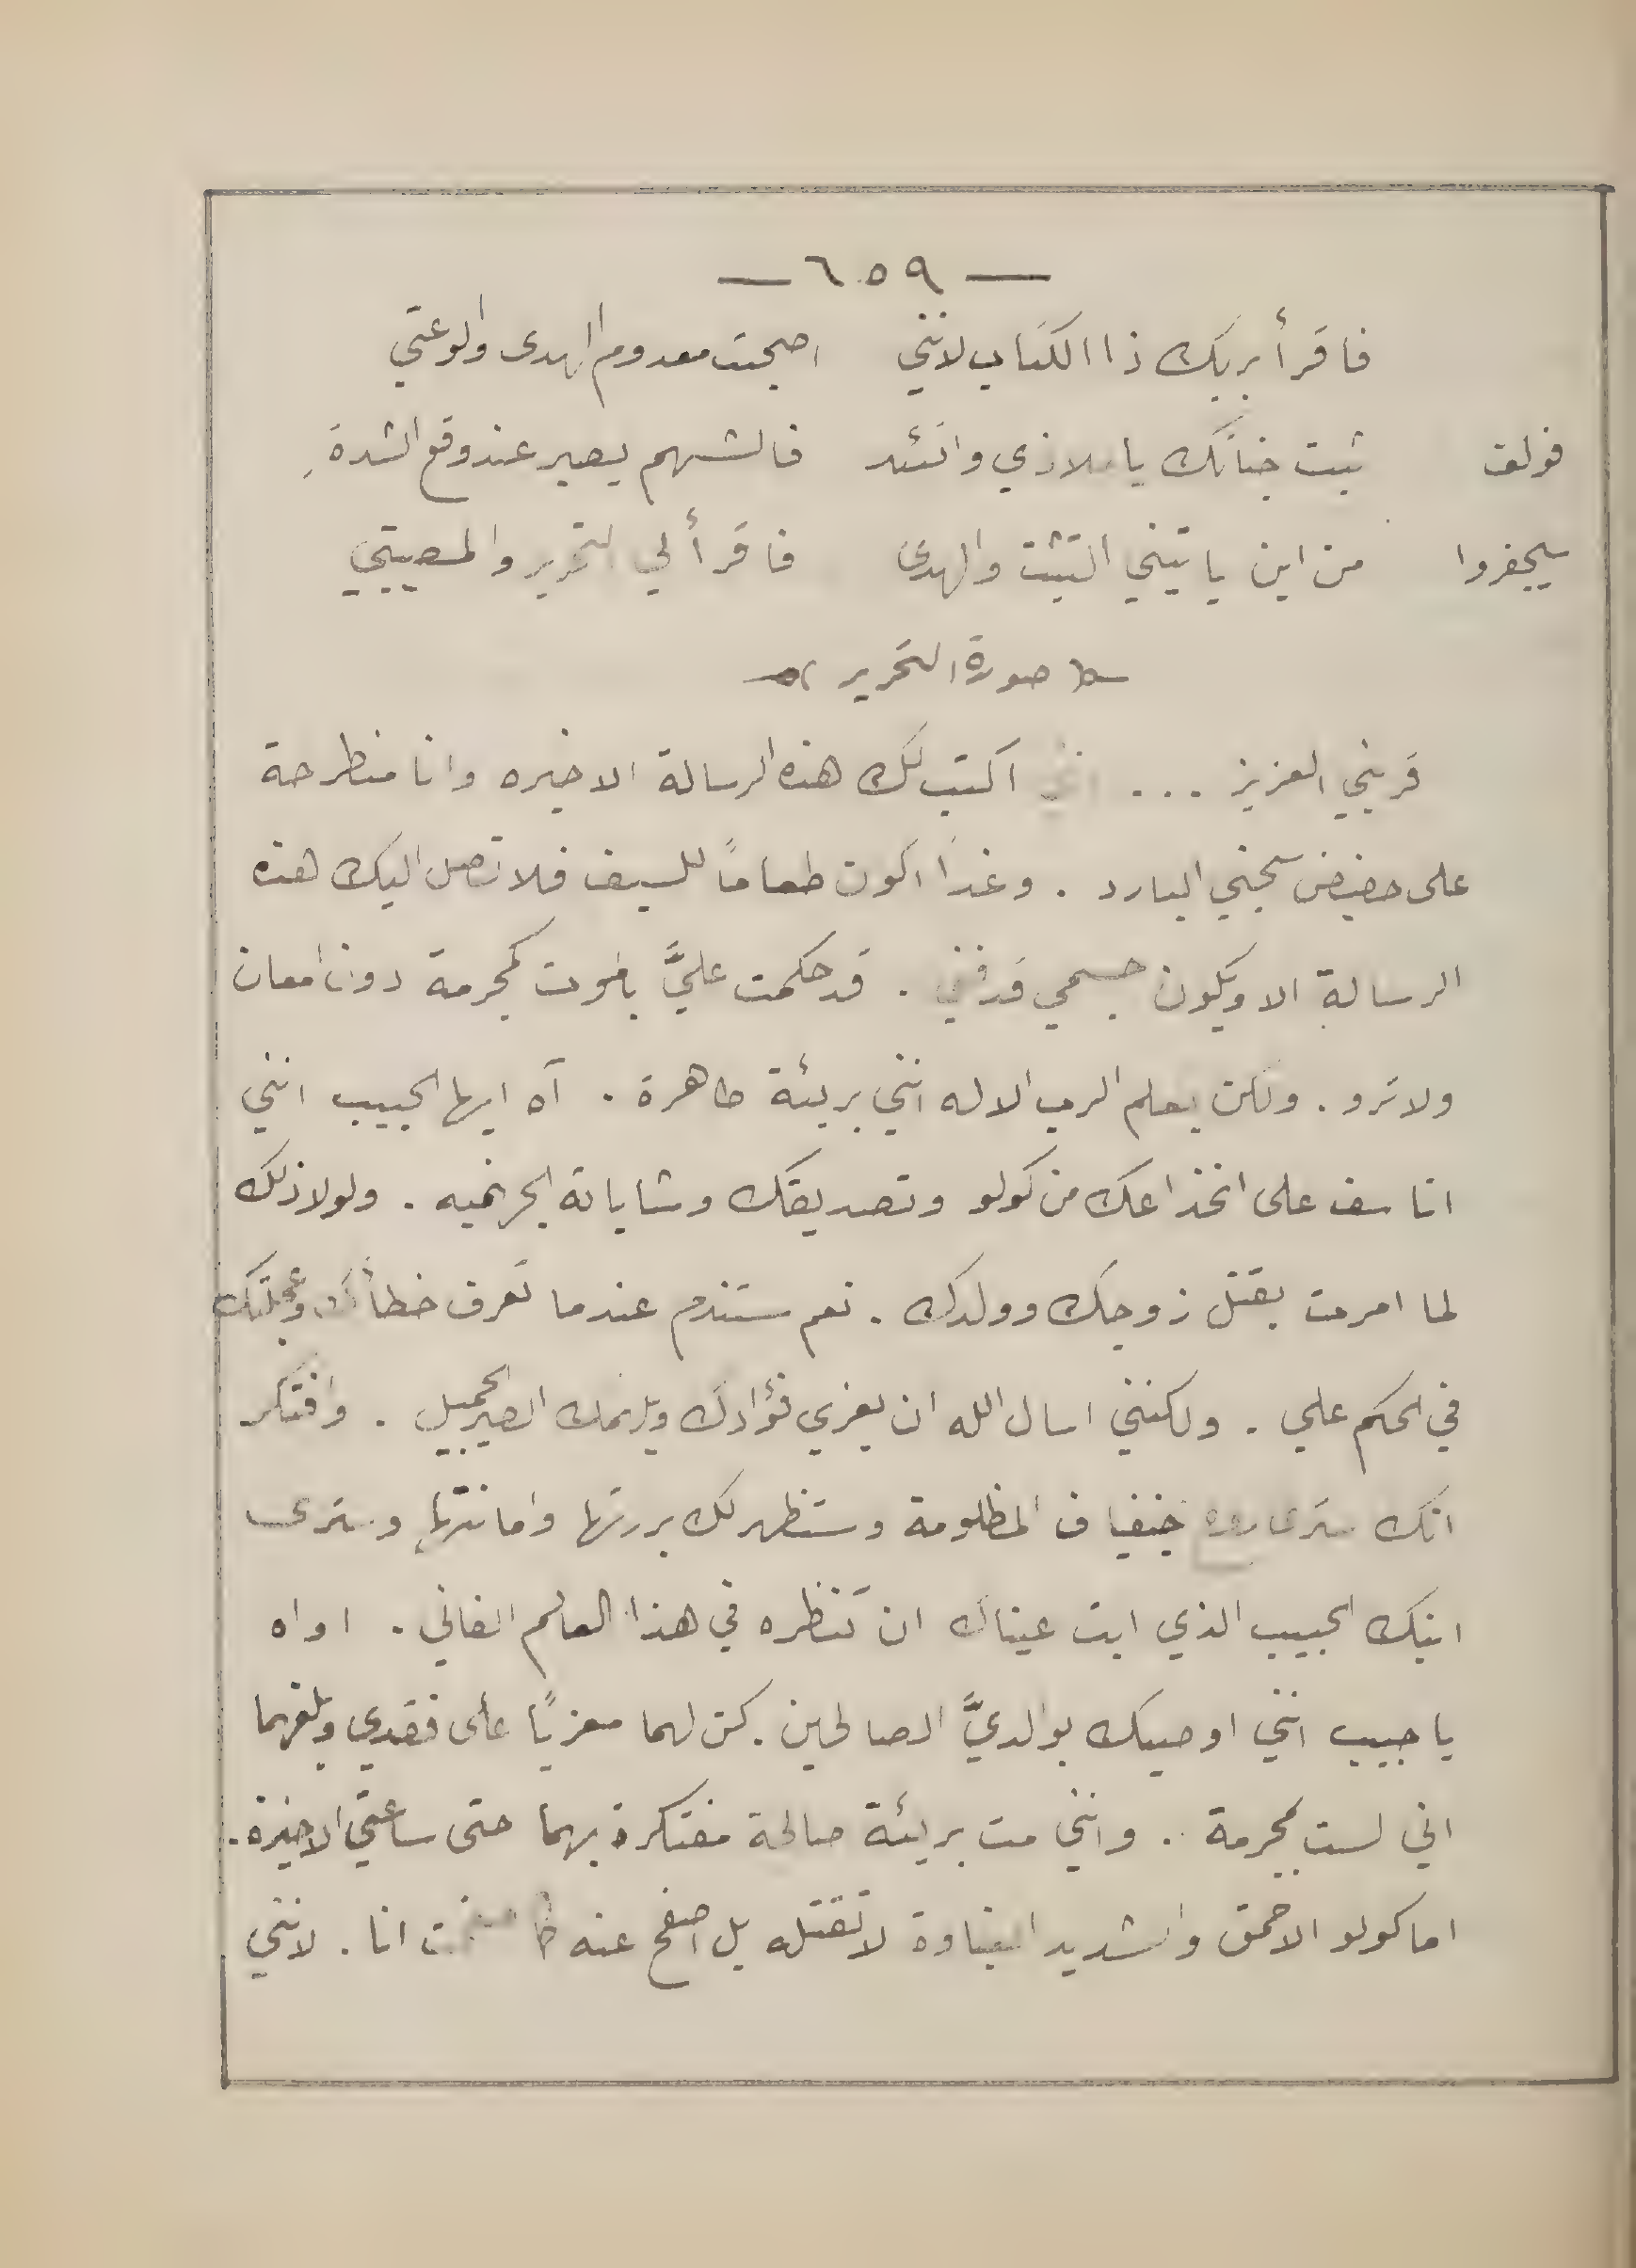 — ٦٥٩ —
فاقرأ بربك ذا الكتاب لانني اصبحت معدوم الهدى والوعتي
فولف ثبت جنانك يا ملاذي واتئد فالشهم يصبر عند وقع الشدةِ
سيجفروا من اين ياتيني التثبت والهدى فاقرأ لي التحرير والمصيبتي
صورة التحرير
قريني العزيز ... انني اكتب لك هذه الرسالة الاخيره وانا منطرحة
على حضيض سجني البارد . وغداً اكون طعاماً للسيف فلا تصل اليك هذه
الرسالة الا ويكون جسمي قد فني . قد حكمت عليَّ بالموت كمجرمة دون امعان
ولا ترو . ولكن يعلم الرب الاله انني بريئة طاهرة . آه ايها الحبيب انني
اتاسف على انخذاعك من كولو وتصديقك وشاياته الجرنميه . ولولا ذلك
لما امرت بقتل زوجك وولدك . نعم ستندم عندما تعرف خطأك وعجلتك
في الحكم علي . ولكنني اسال الله ان يعزي فؤادك ويلهمك الصبر الجميل . وافتكر
انك سترى روح جنفياف المظلومة وستظهر لك بررتها وامانتها وسترى
ابنك الحبيب الذي ابت عيناك ان تنظره في هذا العالم الفاني . اواه
يا حبيب انني اوصيك بوالديَّ الصالحين . كن لهما معزياً على فقدي وبلغهما
اني لست بمجرمة . وانني مت بريئة صالحة مفتكرة بهما حتى ساعتي الاخيرة .
اما كولو الاحمق والشديد الغباوة لا تقتله بل اصفح عنه انا . لانني